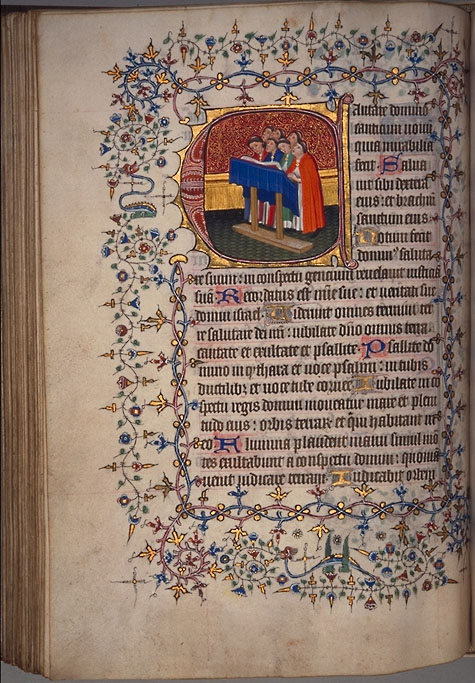 Cantate domino
canticum novu
quia mirabilia
fecit Salva
vit sibi dextera
eius : et brachiu
sanctum eius
Notum fecit
dominus saluta
re suum : in conspectu gentium revelavit iusticia
sua Recordatus est mie sue : et veritati sue
domui israel Viderunt omnes termini ter
re salutare dei nri : iubilate dno omnis terra
cantate et exultate et psallite Psallite do
mino in cythara et voce psalmi : in tubis
ductilibz et voce tube cornee Iubilate in co
spectu regis domini moveatur mare et pleni
tudo eius : orbis terrar et qui habitant in
eo Flumina plaudent manu simul mo
tes exultabunt a conspectu domini : quonia
venit iudicare terram Iudicabit orbem